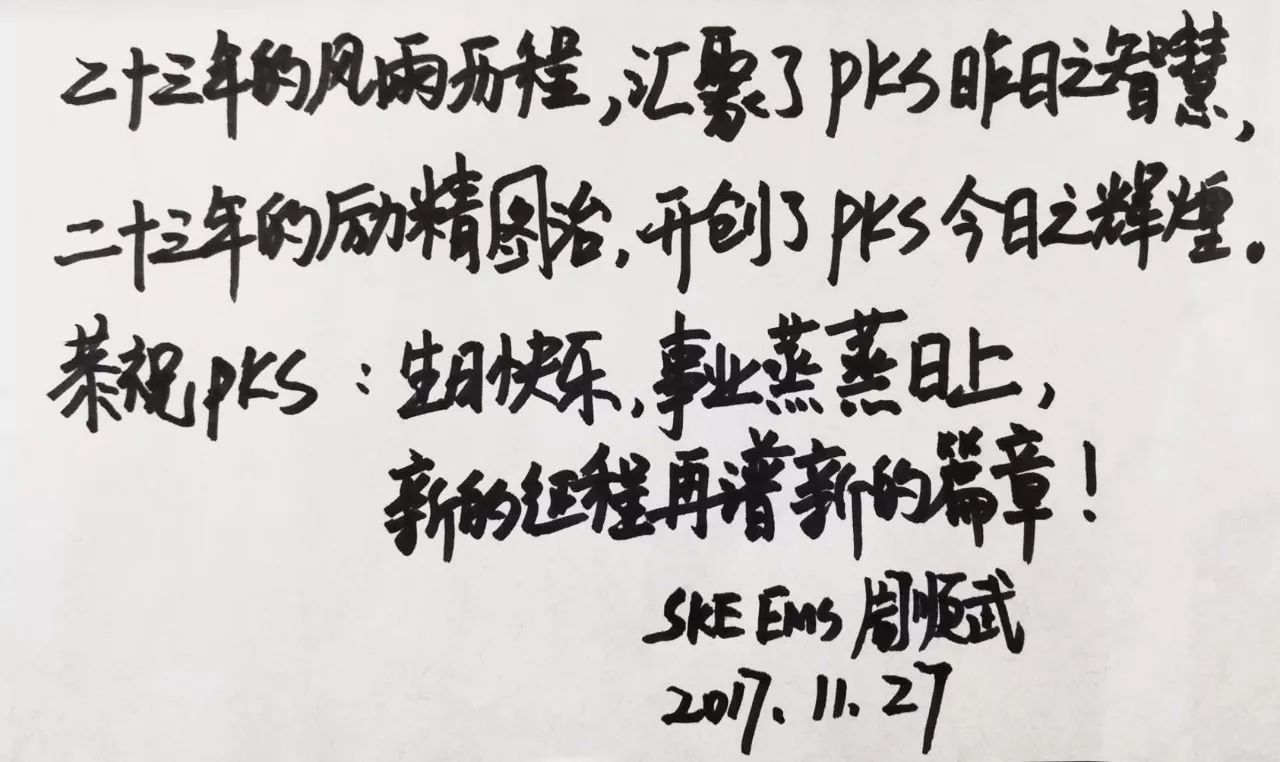 二十三年的风雨历程,汇聚了PKS昨日之智慧,
二十三年的励精图治,开创了PKS今日之辉煌。
恭祝PKS:生日快乐,事业蒸蒸日上,
新的征程再谱新的篇章!
SKE EMS 周顺武
2017.11.27